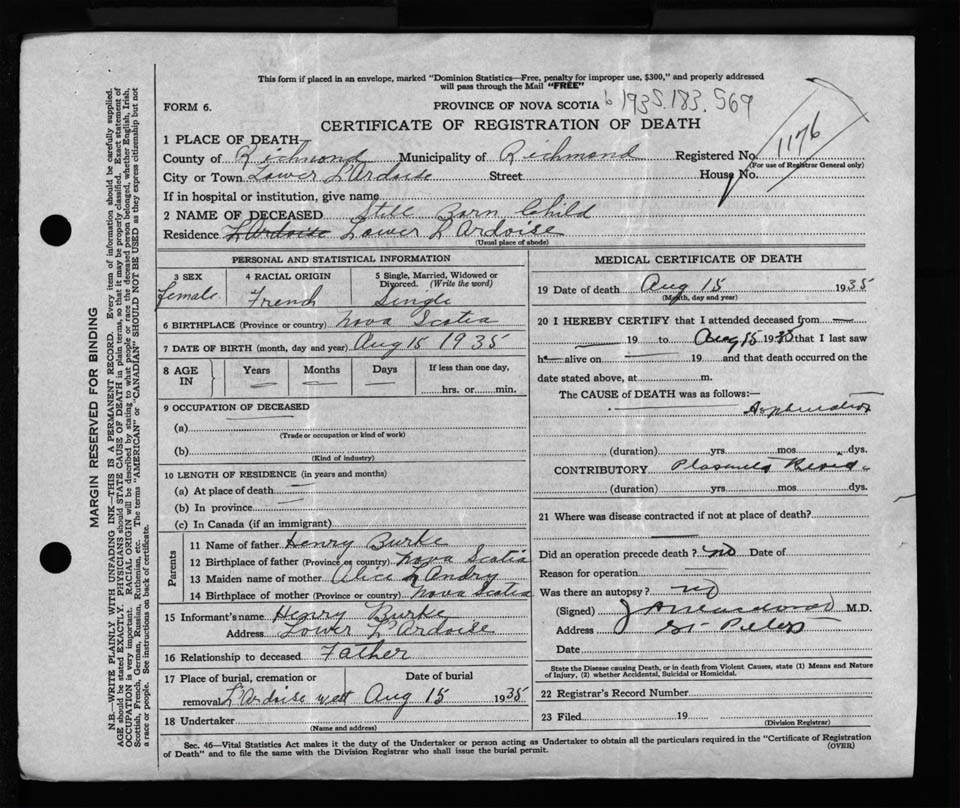 This form if placed in an envelope, marked "Dominion Statistics—Free, penalty for improper use, $300," and properly addressed
will pass through the Mail "FREE"
FORM 6. PROVINCE OF NOVA SCOTIA 1935.183.569
CERTIFICATE OF REGISTRATION OF DEATH
1 PLACE OF DEATH—
County of Richmond Municipality of Richmond Registered No. 1176
(For use of Registrar General only)
City or Town Lower L'Ardoise Street House No.
If in hospital or institution, give name
2 NAME OF DECEASED Still Born Child
Residence L'Ardoise Lower L'Ardoise
(Usual place of abode)
PERSONAL AND STATISTICAL INFORMATION
3 SEX 4 RACIAL ORIGIN 5 Single, Married, Widowed or
Divorced. (Write the word)
female French Single
6 BIRTHPLACE (Province or country) Nova Scotia
7 DATE OF BIRTH (month, day and year) Aug 15 1935
8 AGE IN Years Months Days If less than one day,
hrs. or min.
9 OCCUPATION OF DECEASED
(a)
(Trade or occupation or kind of work)
(b)
(Kind of industry)
10 LENGTH OF RESIDENCE (in years and months)
(a) At place of death
(b) In province
(c) In Canada (if an immigrant)
Parents
11 Name of father Henry Burke
12 Birthplace of father (Province or country) Nova Scotia
13 Maiden name of mother Alice Landry
14 Birthplace of mother (Province or country) Nova Scotia
15 Informant's name Henry Burke
Address Lower L'Ardoise
16 Relationship to deceased Father
17 Place of burial, cremation or Date of burial
removal L'Ardoise west Aug 15 1935
18 Undertaker
(Name and address)
MEDICAL CERTIFICATE OF DEATH
19 Date of death Aug 15 1935
(Month, day and year)
20 I HEREBY CERTIFY that I attended deceased from
19 to Aug 15 1935 that I last saw
h alive on 19 and that death occurred on the
date stated above, at m.
The CAUSE of DEATH was as follows:—
(duration) yrs. mos. dys.
CONTRIBUTORY Placenta
(duration) yrs. mos. dys.
21 Where was disease contracted if not at place of death?
Did an operation precede death? no Date of
Reason for operation
Was there an autopsy? no
(Signed) M.D.
Address St. Peters
Date
State the Disease causing Death, or in death from Violent Causes, state (1) Means and Nature
of Injury, (2) whether Accidental, Suicidal or Homicidal.
22 Registrar's Record Number
23 Filed 19
(Division Registrar)
Sec. 46—Vital Statistics Act makes it the duty of the Undertaker or person acting as Undertaker to obtain all the particulars required in the "Certificate of Registration
of Death" and to file the same with the Division Registrar who shall issue the burial permit. (OVER)
MARGIN RESERVED FOR BINDING
N.B.—WRITE PLAINLY WITH UNFADING INK—THIS IS A PERMANENT RECORD. Every item of information should be carefully supplied.
AGE should be stated EXACTLY. PHYSICIANS should STATE CAUSE OF DEATH in plain terms, so that it may be properly classified. Exact statement of
OCCUPATION is very important. RACIAL ORIGIN will be described by stating to what people or race the deceased person belonged, whether English, Irish,
Scottish, French, German, Russian, Ruthenian, etc. The terms "AMERICAN" or "CANADIAN" SHOULD NOT BE USED as they express citizenship but not
a race or people. See instructions on back of certificate.